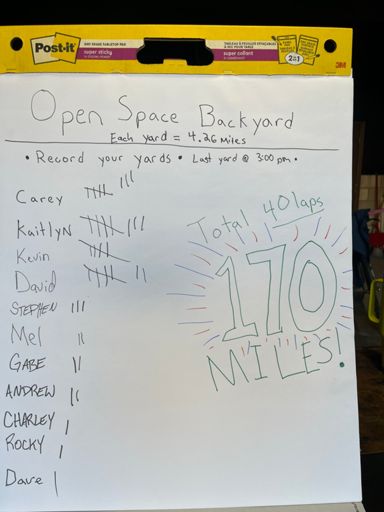 Post-it
super sticky
super collant
2in1
3M
Open Space Backyard
Each yard = 4.26 Miles
• Record your yards • Last yard @ 3:00 pm •
Carey
KaitlyN
Kevin
David
STEPHEN
Mel
GABE
ANDREW
CHARLEY
ROCKY
Dave
Total 40 laps
170
MILES!